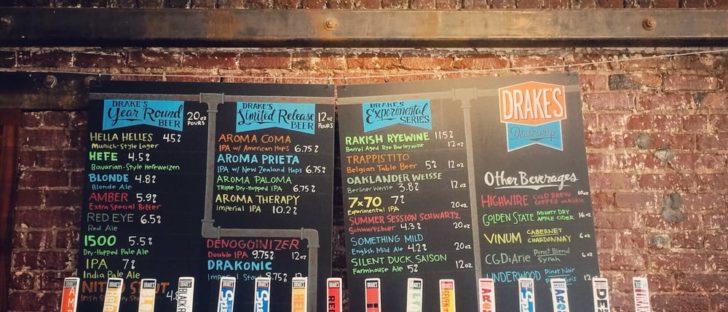 DRAKE'S
Year Round
BEER
20oz
POURS
HELLA HELLES 4.5%
Munich-Style Lager
HEFE 4.5%
Bavarian-Style Hefeweizen
BLONDE 4.8%
Blonde Ale
AMBER 5.9%
Extra Special Bitter
RED EYE 6.5%
Red Ale
1500 5.5%
Dry-Hopped Pale Ale
IPA 7%
India Pale Ale
STOUT
DRAKE'S
Limited Release
BEER
12oz
POURS
AROMA COMA
IPA w/ American Hops 6.75%
AROMA PRIETA
IPA w/ New Zealand Hops 6.75%
AROMA PALOMA
Triple Dry-Hopped IPA 6.75%
AROMA THERAPY
Imperial IPA 10.2%
DENOGGINIZER
Double IPA 9.75% 12oz
DRAKONIC
12oz
DRAKE'S
Experimental
SERIES
RAKISH RYEWINE 11.5%
Barrel Aged Rye Barleywine 12oz
TRAPPISTITO
Belgian Table Beer 5% 12oz
OAKLANDER WEISSE
Berliner Weisse 3.8% 12oz
7x70 7%
Experimental IPA 12oz
SUMMER SESSION SCHWARTZ
Schwartzbier 4.3% 12oz
SOMETHING MILD
English Mild Ale 4.2% 12oz
SILENT DUCK SAISON
Farmhouse Ale 5% 12oz
DRAKE'S
Dealership
Other Beverages
HIGHWIRE COLD BREW
COFFEE
GOLDEN STATE MIGHTY DRY
APPLE CIDER
VINUM CABERNET
CHARDONNAY
CG DiArie Pinot Blend
Syrah
UNDERWOOD Pinot Noir